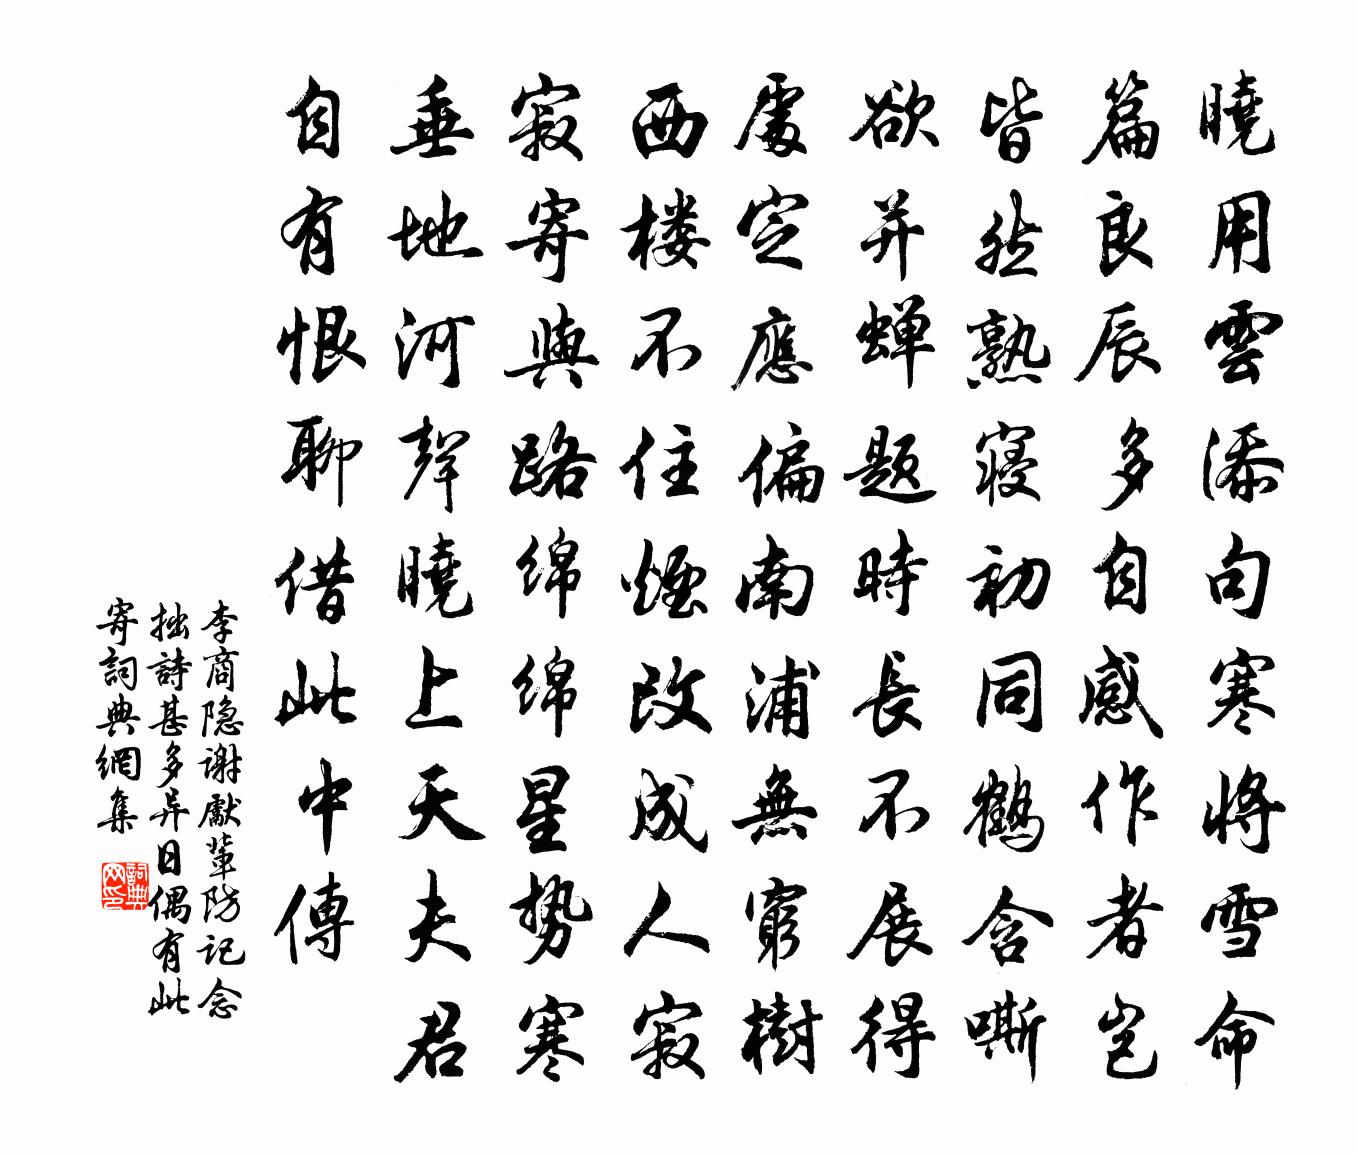 曉用雲添句寒將雪命
篇良辰多自感作者豈
皆然熟寢初同鶴含嘶
欲并蝉題時長不展得
處定應偏南浦無窮樹
西楼不住煙改成人寂
寂寄與路绵绵星势寒
垂地河聲曉上天夫君
自有恨聊借此中傳
李商隐谢獻輩防記念
拙詩甚多异日偶有此
寄詞典網集
詞典网印